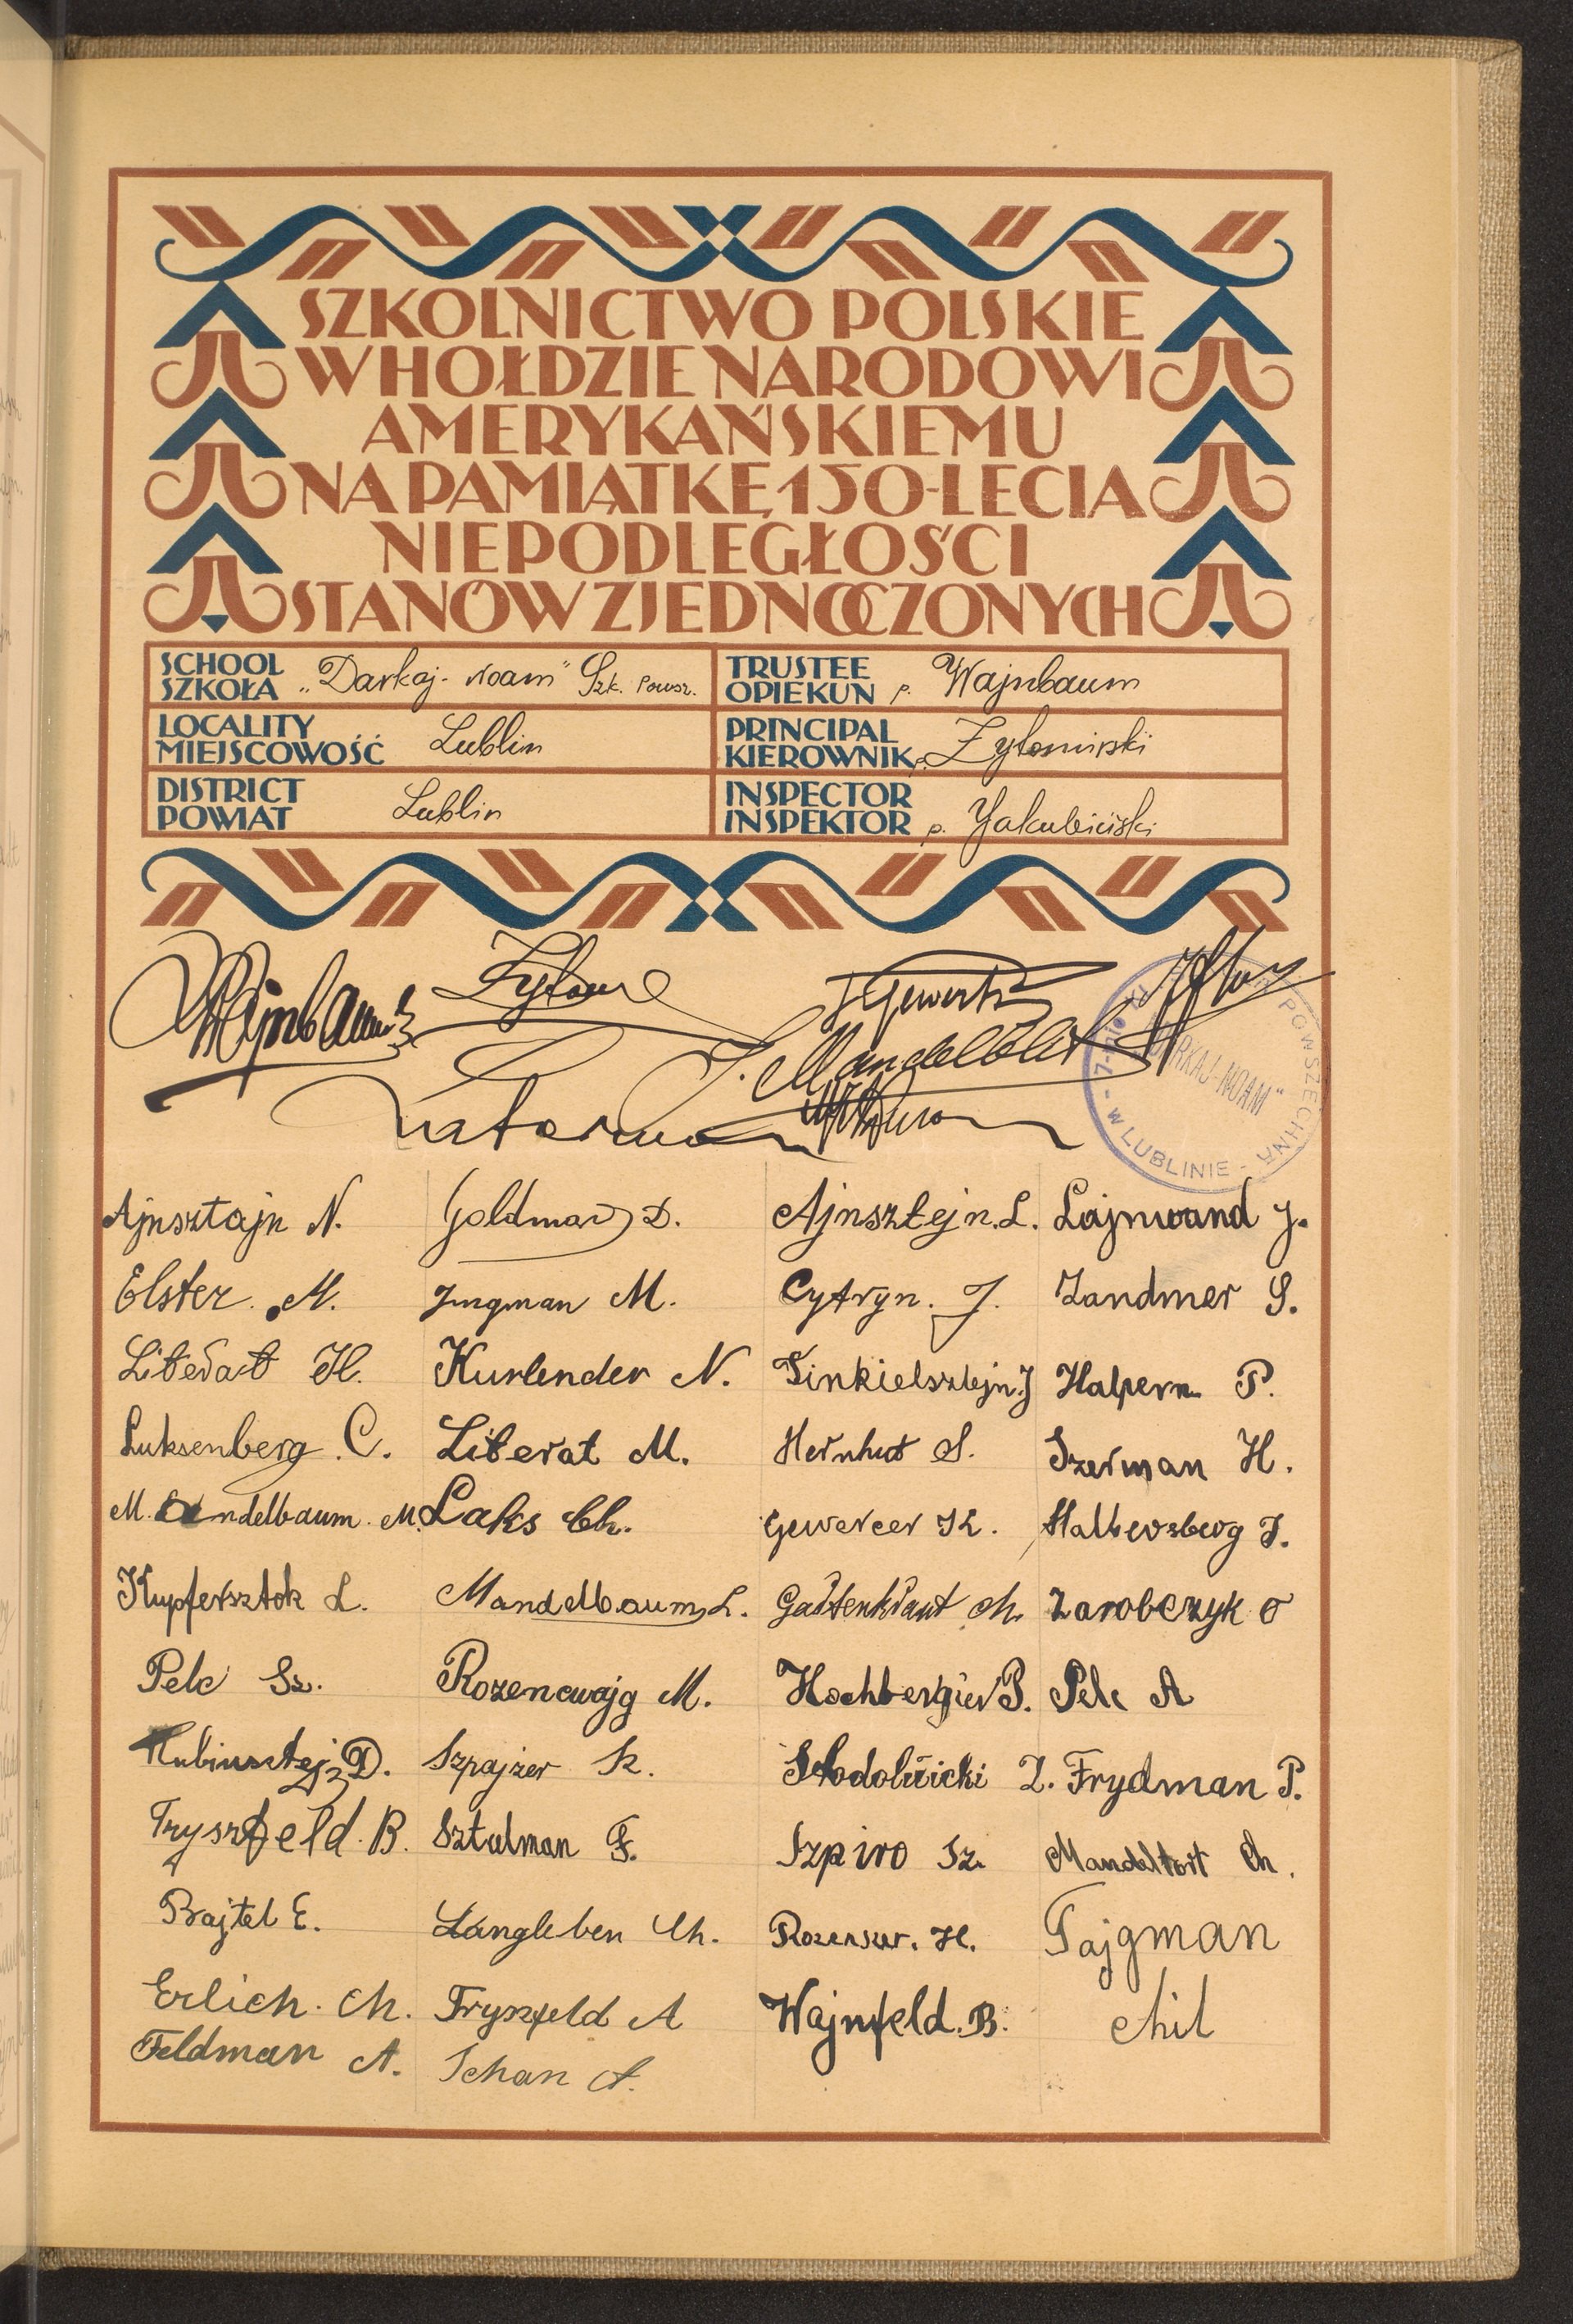 SZKOLNICTWO POLSKIE
W HOŁDZIE NARODOWI
AMERYKAŃSKIEMU
NA PAMIĄTKĘ 150-LECIA
NIEPODLEGŁOŚCI
STANÓW ZJEDNOCZONYCH
SCHOOL
SZKOŁA „Darkaj-Noam" Szk. Powsz.
TRUSTEE
OPIEKUN p. Wajnbaum
LOCALITY
MIEJSCOWOŚĆ Lublin
PRINCIPAL
KIEROWNIK p. Żytomirski
DISTRICT
POWIAT Lublin
INSPECTOR
INSPEKTOR p. Yakubiciski
Wajnbaum
J. Gewertz
J. Mandelblat
POWSZECHNA
"DARKAJ-NOAM"
- W LUBLINIE -
Ajnsztajn N. Goldman D. Ajnsztejn. L. Lajnwand J.
Elster. M. Jungman M. Cytryn. J. Zandmer S.
Liberat H. Kurlender N. Finkielsztejn J Halpern P.
Luksenberg. C. Liberat M. Hernhut S. Szerman H.
M. andelbaum. M. Laks Ch. Gewercer K. Halbersberg J.
Kupfersztok L. Mandelbaum L. Gartenkraut Ch. Zarobczyk
Pelc Sz. Rozencwajg M. Hochbergier P. Pelc A
Rubinsztejn D. Szpajzer K. Słodownicki Z. Frydman P.
Fryszfeld. B. Sztulman F. Szpiro Sz. Mandeltort Ch.
Brajtel E. Langleben Ch. H. Fajgman
Erlich. Ch. Fryszfeld A Wajnfeld. B. Chil
Feldman A. A.